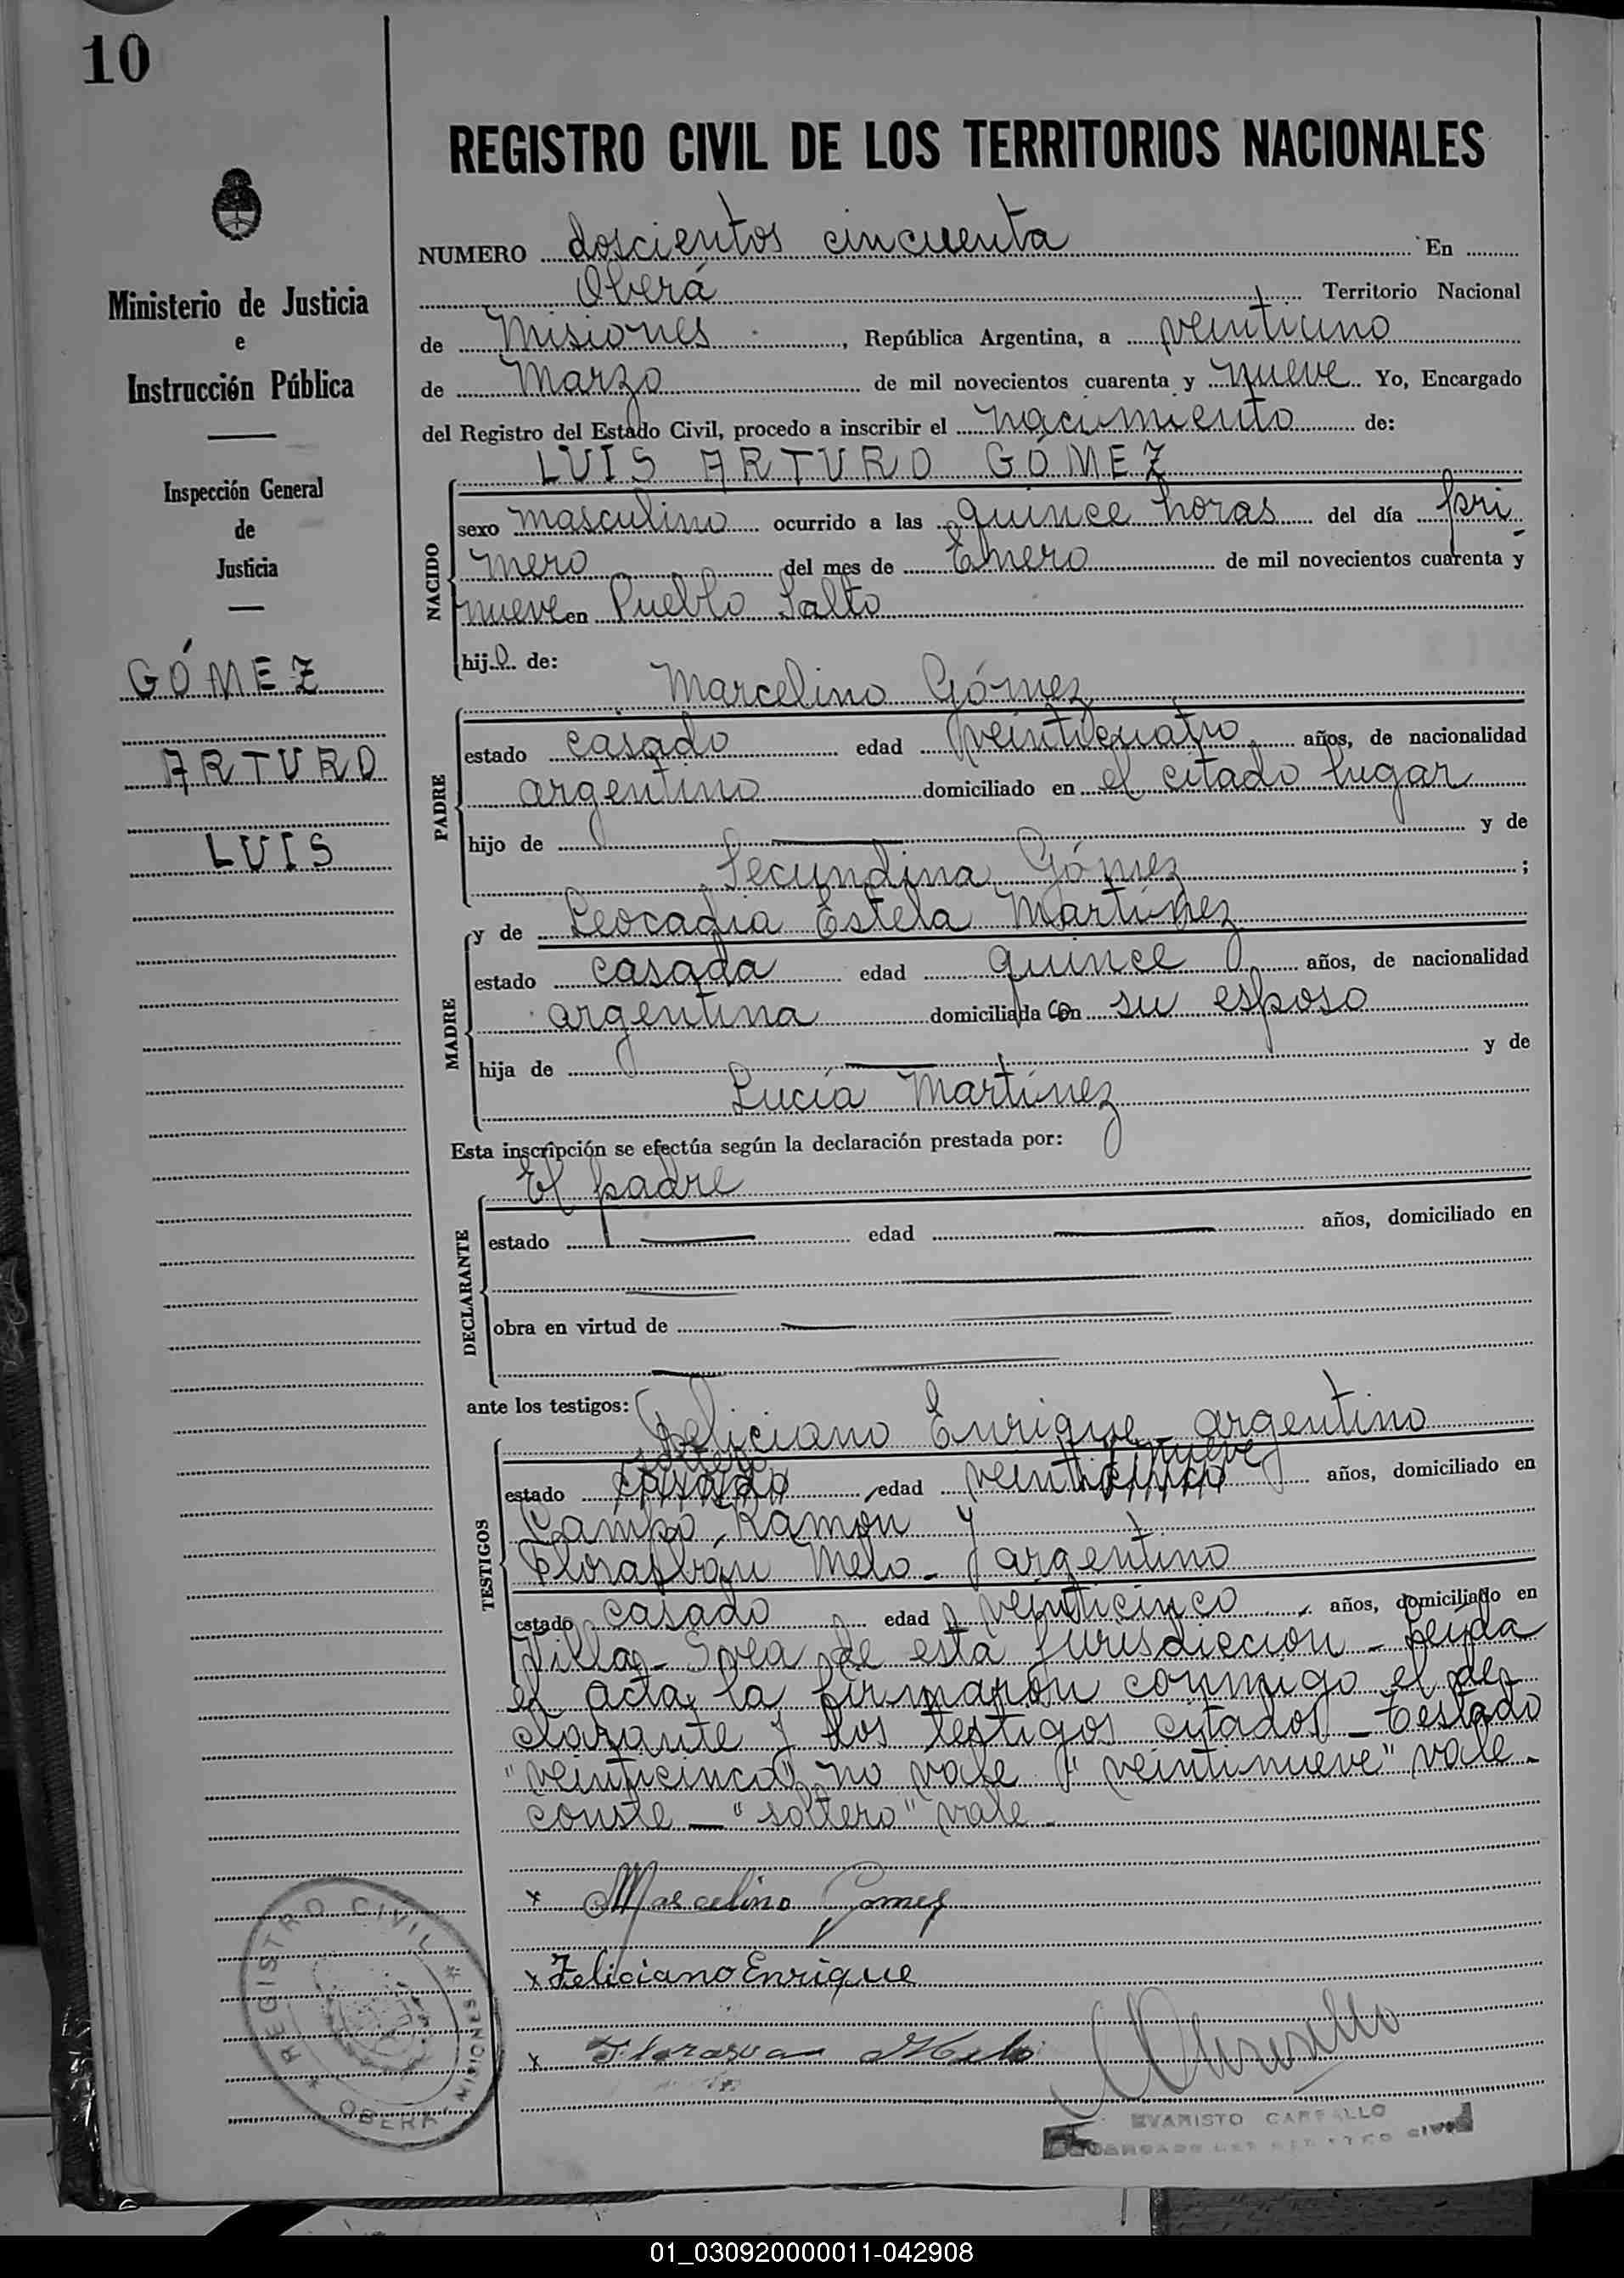 10
Ministerio de Justicia
e
Instrucción Pública
Inspección General
de
Justicia
GÓMEZ
ARTURO
LUIS
REGISTRO CIVIL DE LOS TERRITORIOS NACIONALES
NUMERO doscientos cincuenta En
Oberá Territorio Nacional
de Misiones, República Argentina, a veintiuno
de Marzo de mil novecientos cuarenta y nueve Yo, Encargado
del Registro del Estado Civil, procedo a inscribir el nacimiento de:
LUIS ARTURO GÓMEZ
NACIDO
sexo masculino ocurrido a las quince horas del día pri-
mero del mes de Enero de mil novecientos cuarenta y
nueve en Pueblo Salto
hijo de:
Marcelino Gómez
PADRE
estado casado edad veinticuatro años, de nacionalidad
argentino domiciliado en el citado lugar
hijo de — y de
Secundina Gómez ;
y de Leocadia Estela Martínez
MADRE
estado casada edad quince años, de nacionalidad
argentina domiciliada con su esposo
hija de — y de
Lucía Martínez
Esta inscripción se efectúa según la declaración prestada por:
El padre
DECLARANTE
estado — edad — años, domiciliado en
obra en virtud de —
ante los testigos:
Feliciano Enrique - argentino
TESTIGOS
soltero nueve
estado casado edad veinticinco años, domiciliado en
Campo Ramón y
Florasbán Melo - argentino
estado casado edad veinticinco años, domiciliado en
Villa de esta jurisdicción - Leída
el acta, la firmaron conmigo el de-
clarante y los testigos citados - Testado
"veinticinco" no vale "veintinueve" vale -
conste - "soltero" vale -
x Marcelino Gomez
x Feliciano Enrique
x Melo
REGISTRO CIVIL
OBERA MISIONES
EVARISTO CARFALLO
ENCARGADO DEL REGISTRO CIVIL
01_030920000011-042908